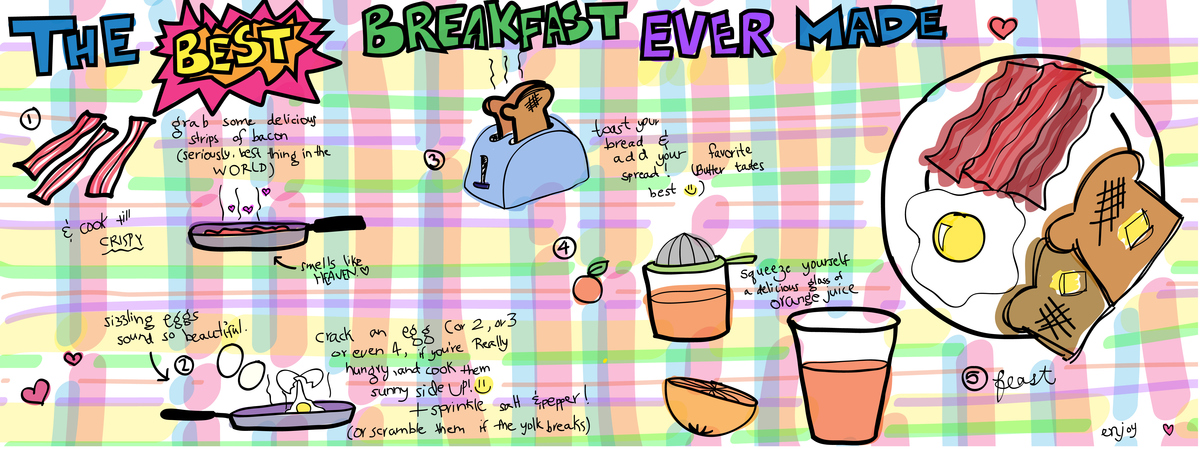 THE BEST BREAKFAST EVER MADE
1
grab some delicious
strips of bacon
(seriously. best thing in the
WORLD)
& cook till
CRISPY
smells like
HEAVEN
sizzling eggs
sound so beautiful.
2
crack an egg (or 2, or 3
or even 4, if you're Really
hungry, and cook them
sunny side UP!
+ sprinkle salt & pepper!
(or scramble them if the yolk breaks)
3
toast your
bread &
add your favorite
spread! (Butter tastes
best )
4
squeeze yourself
a delicious glass of
orange juice
5 feast
enjoy